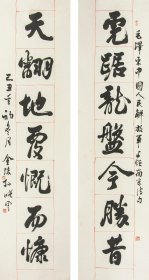 毛澤東中國人民解放軍占領南京詩句
虎踞龍盤今勝昔
天翻地覆慨而慷
己丑
金陵孫曉雲